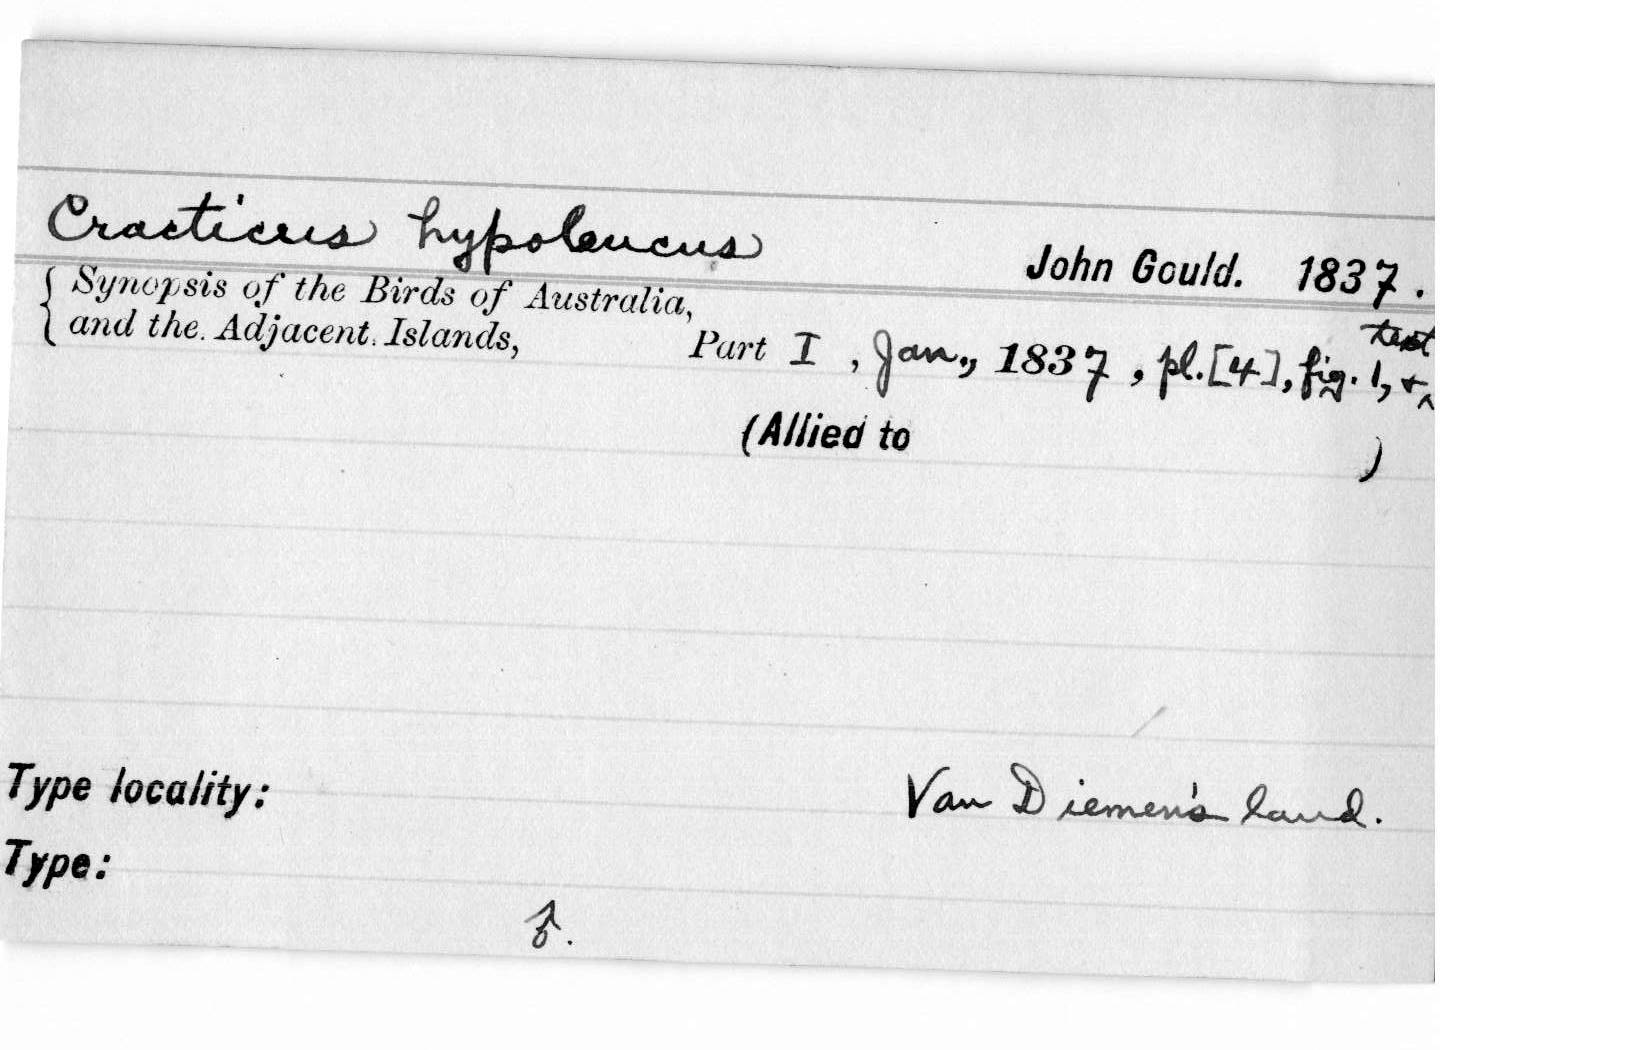 Cracticus hypoleucus
John Gould. 1837.
{ Synopsis of the Birds of Australia,
and the Adjacent Islands,
Part I, Jan., 1837, pl.[4], fig. 1, + text
(Allied to )
Type locality: Van Diemen's land.
Type:
♂.